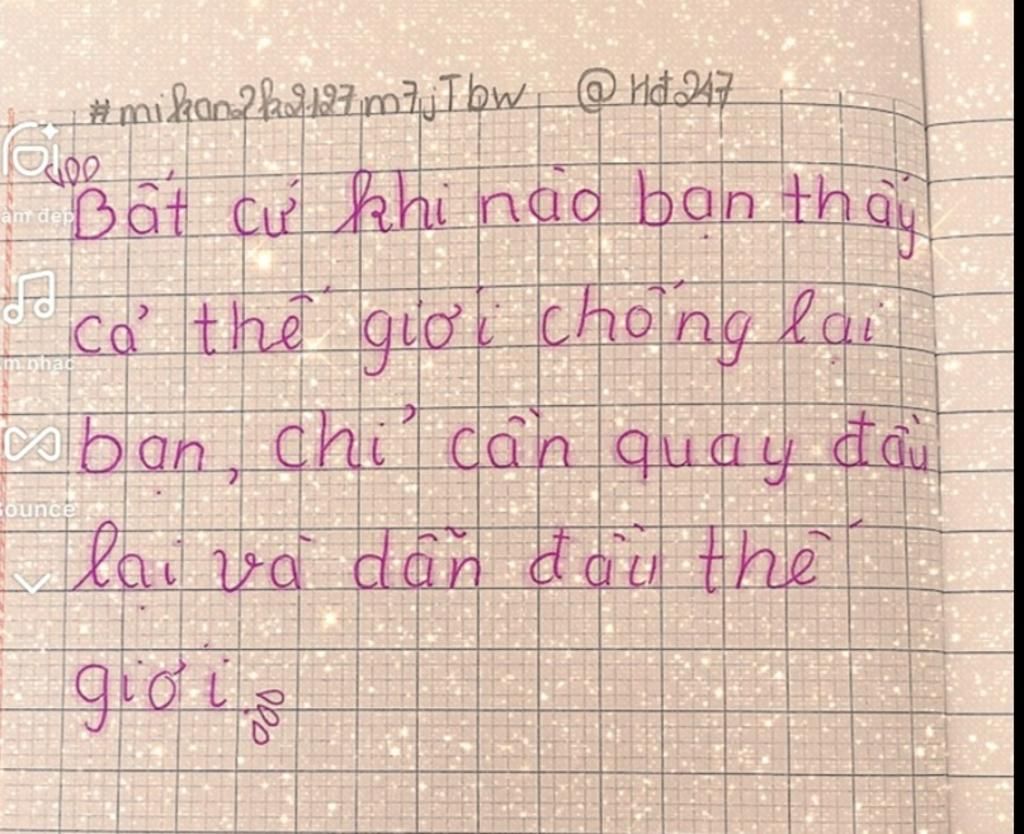 #mikan2k2127,m7,jTbw @Hd247
Bất cứ khi nào bạn thấy
cả thế giới chống lại
bạn, chỉ cần quay đầu
lại và dẫn đầu thế
giới.